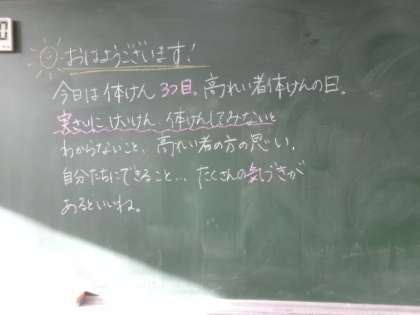 おはようございます!
今日は体けん3つ目。高れい者体けんの日。
実さいに けいけん、体けんしてみないと
わからないこと、高れい者の方の思い、
自分たちにできること… たくさんの気づきが
あるといいね。